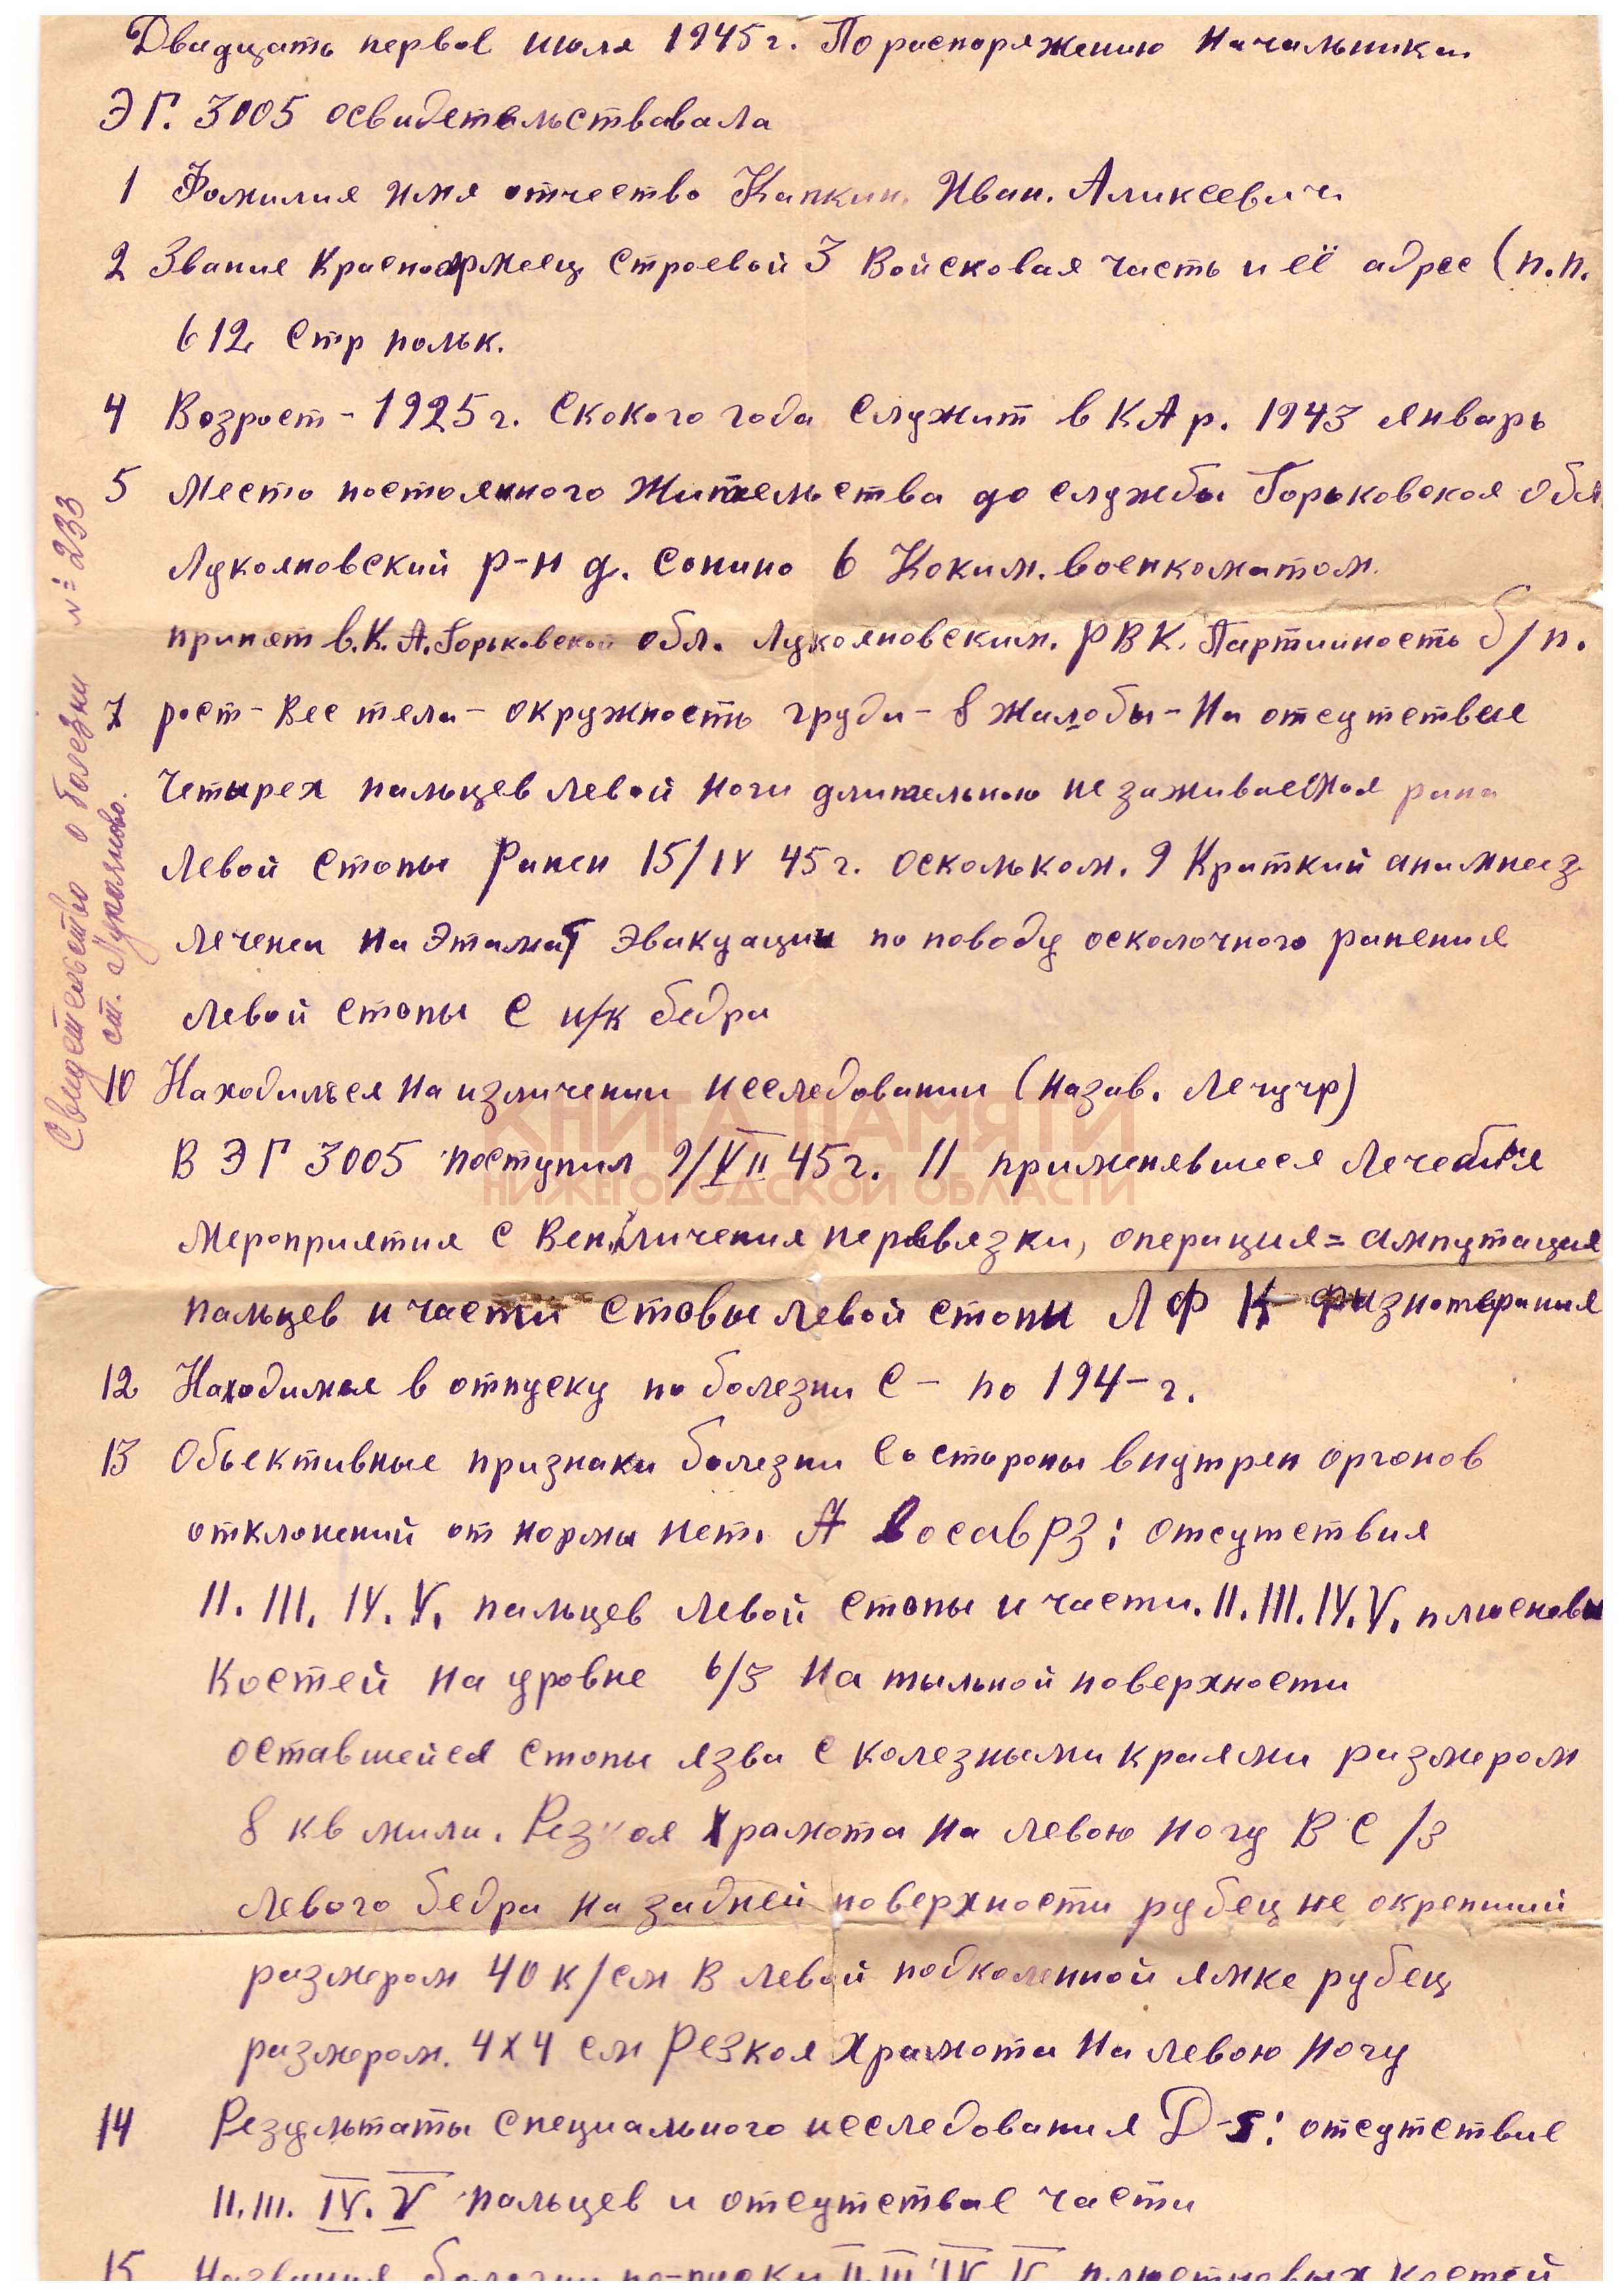 Двадцать первое июля 1945 г. По распоряжению начальника
ЭГ. 3005 освидетельствавала
1 Фамилия имя отчество Капкин. Иван. Аликсеевич
2 Звание Красноармеец строевой 3 Войсковая часть и её адрес (п.п.
612 стр польк.
4 Возраст - 1925 г. Скокого года служит в КА р. 1943 январь
5 Место постоянного жительства до службы Горьковская обл
Лукояновский р-н д. Сонино 6 Каким. военкоматом.
принят в.К.А. Горьковской обл. Лукояновским. РВК. Партийность б/п.
7 рост - вес тела - окружность груди - 8 Жалобы - На отсутствие
четырех пальцев левой ноги длительною не заживаемая рана
левой стопы Ранен 15/IV 45 г. оскольком. 9 Краткий анамнез
лечен на этапах эвакуации по поводу осколочного ранения
левой стопы с и/к бедра
10 Находился на изличении исследовании (назав. лечучр)
В ЭГ 3005 поступил 9/VII 45 г. 11 применявшиеся лечебные
мероприятия с личения перевязки, операция = ампутация
пальцев и части стовы левой стопы ЛФК физиотерапия
12 Находился в отпуску по болезни с - по 194- г.
13 Объективные признаки болезни со стороны внутрен органов
отклонений от нормы нет. : отсутствия
II. III. IV. V. пальцев левой стопы и части. II. III. IV. V. плюсневы
костей на уровне в/3 на тыльной поверхности
оставшейся стопы язва с колезными краями размером
8 кв мили. Резкая хромота на левою ногу В С/3
левого бедра на задней поверхности рубец не окрепший
размером 40 к/см в левой подколенной ямке рубец
размером. 4х4 см Резкая хромота на левою ногу
14 Результаты специального исследования D-s: отсутствие
II. III. IV. V пальцев и отсутствие части
15 Название болезни II III IV V плюстневых костей
Свидетельство о болезни № 233
ст. Лукояново.
КНИГА ПАМЯТИ
НИЖЕГОРОДСКОЙ ОБЛАСТИ